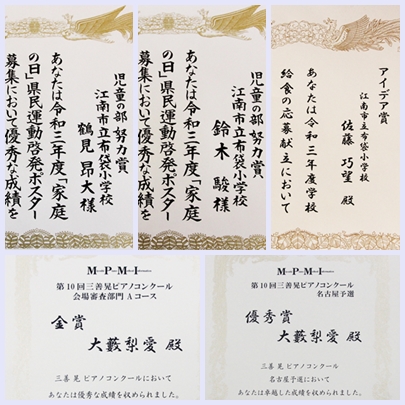 児童の部 努力賞
江南市立布袋小学校
鶴見 昂大 様
あなたは令和三年度「家庭
の日」県民運動啓発ポスター
募集において優秀な成績を
児童の部 努力賞
江南市立布袋小学校
鈴木 駿 様
あなたは令和三年度「家庭
の日」県民運動啓発ポスター
募集において優秀な成績を
アイデア賞
江南市立布袋小学校
佐藤 巧望 殿
あなたは令和三年度学校
給食の応募献立において
M P M I
第10回三善晃ピアノコンクール
会場審査部門 Aコース
金賞
大藪梨愛 殿
三善 晃 ピアノコンクールにおいて
あなたは優秀な成績を収められました。
M P M I
第10回三善晃ピアノコンクール
名古屋予選
優秀賞
大藪梨愛 殿
三善 晃 ピアノコンクール
名古屋予選において
あなたは卓越した成績を収められました。